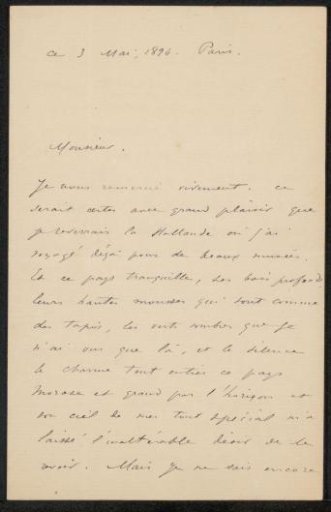 ce 3 Mai, 1894. Paris.
Monsieur.
Je vous remercie vivement. ce
serait certes avec grand plaisir que
je reverrais la Hollande où j'ai
voyagé déjà pour de beaux musées.
Et ce pays tranquille, ses bois profonds
leurs hautes mousses qui sont comme
des tapis, les verts sombres que je
n'ai vus que là, et le silence
le charme tout entier ce pays
morose et grand par l'horizon et
son ciel de mer tout spécial m'a
laissé l'inaltérable désir de le
revoir. Mais je ne sais encore